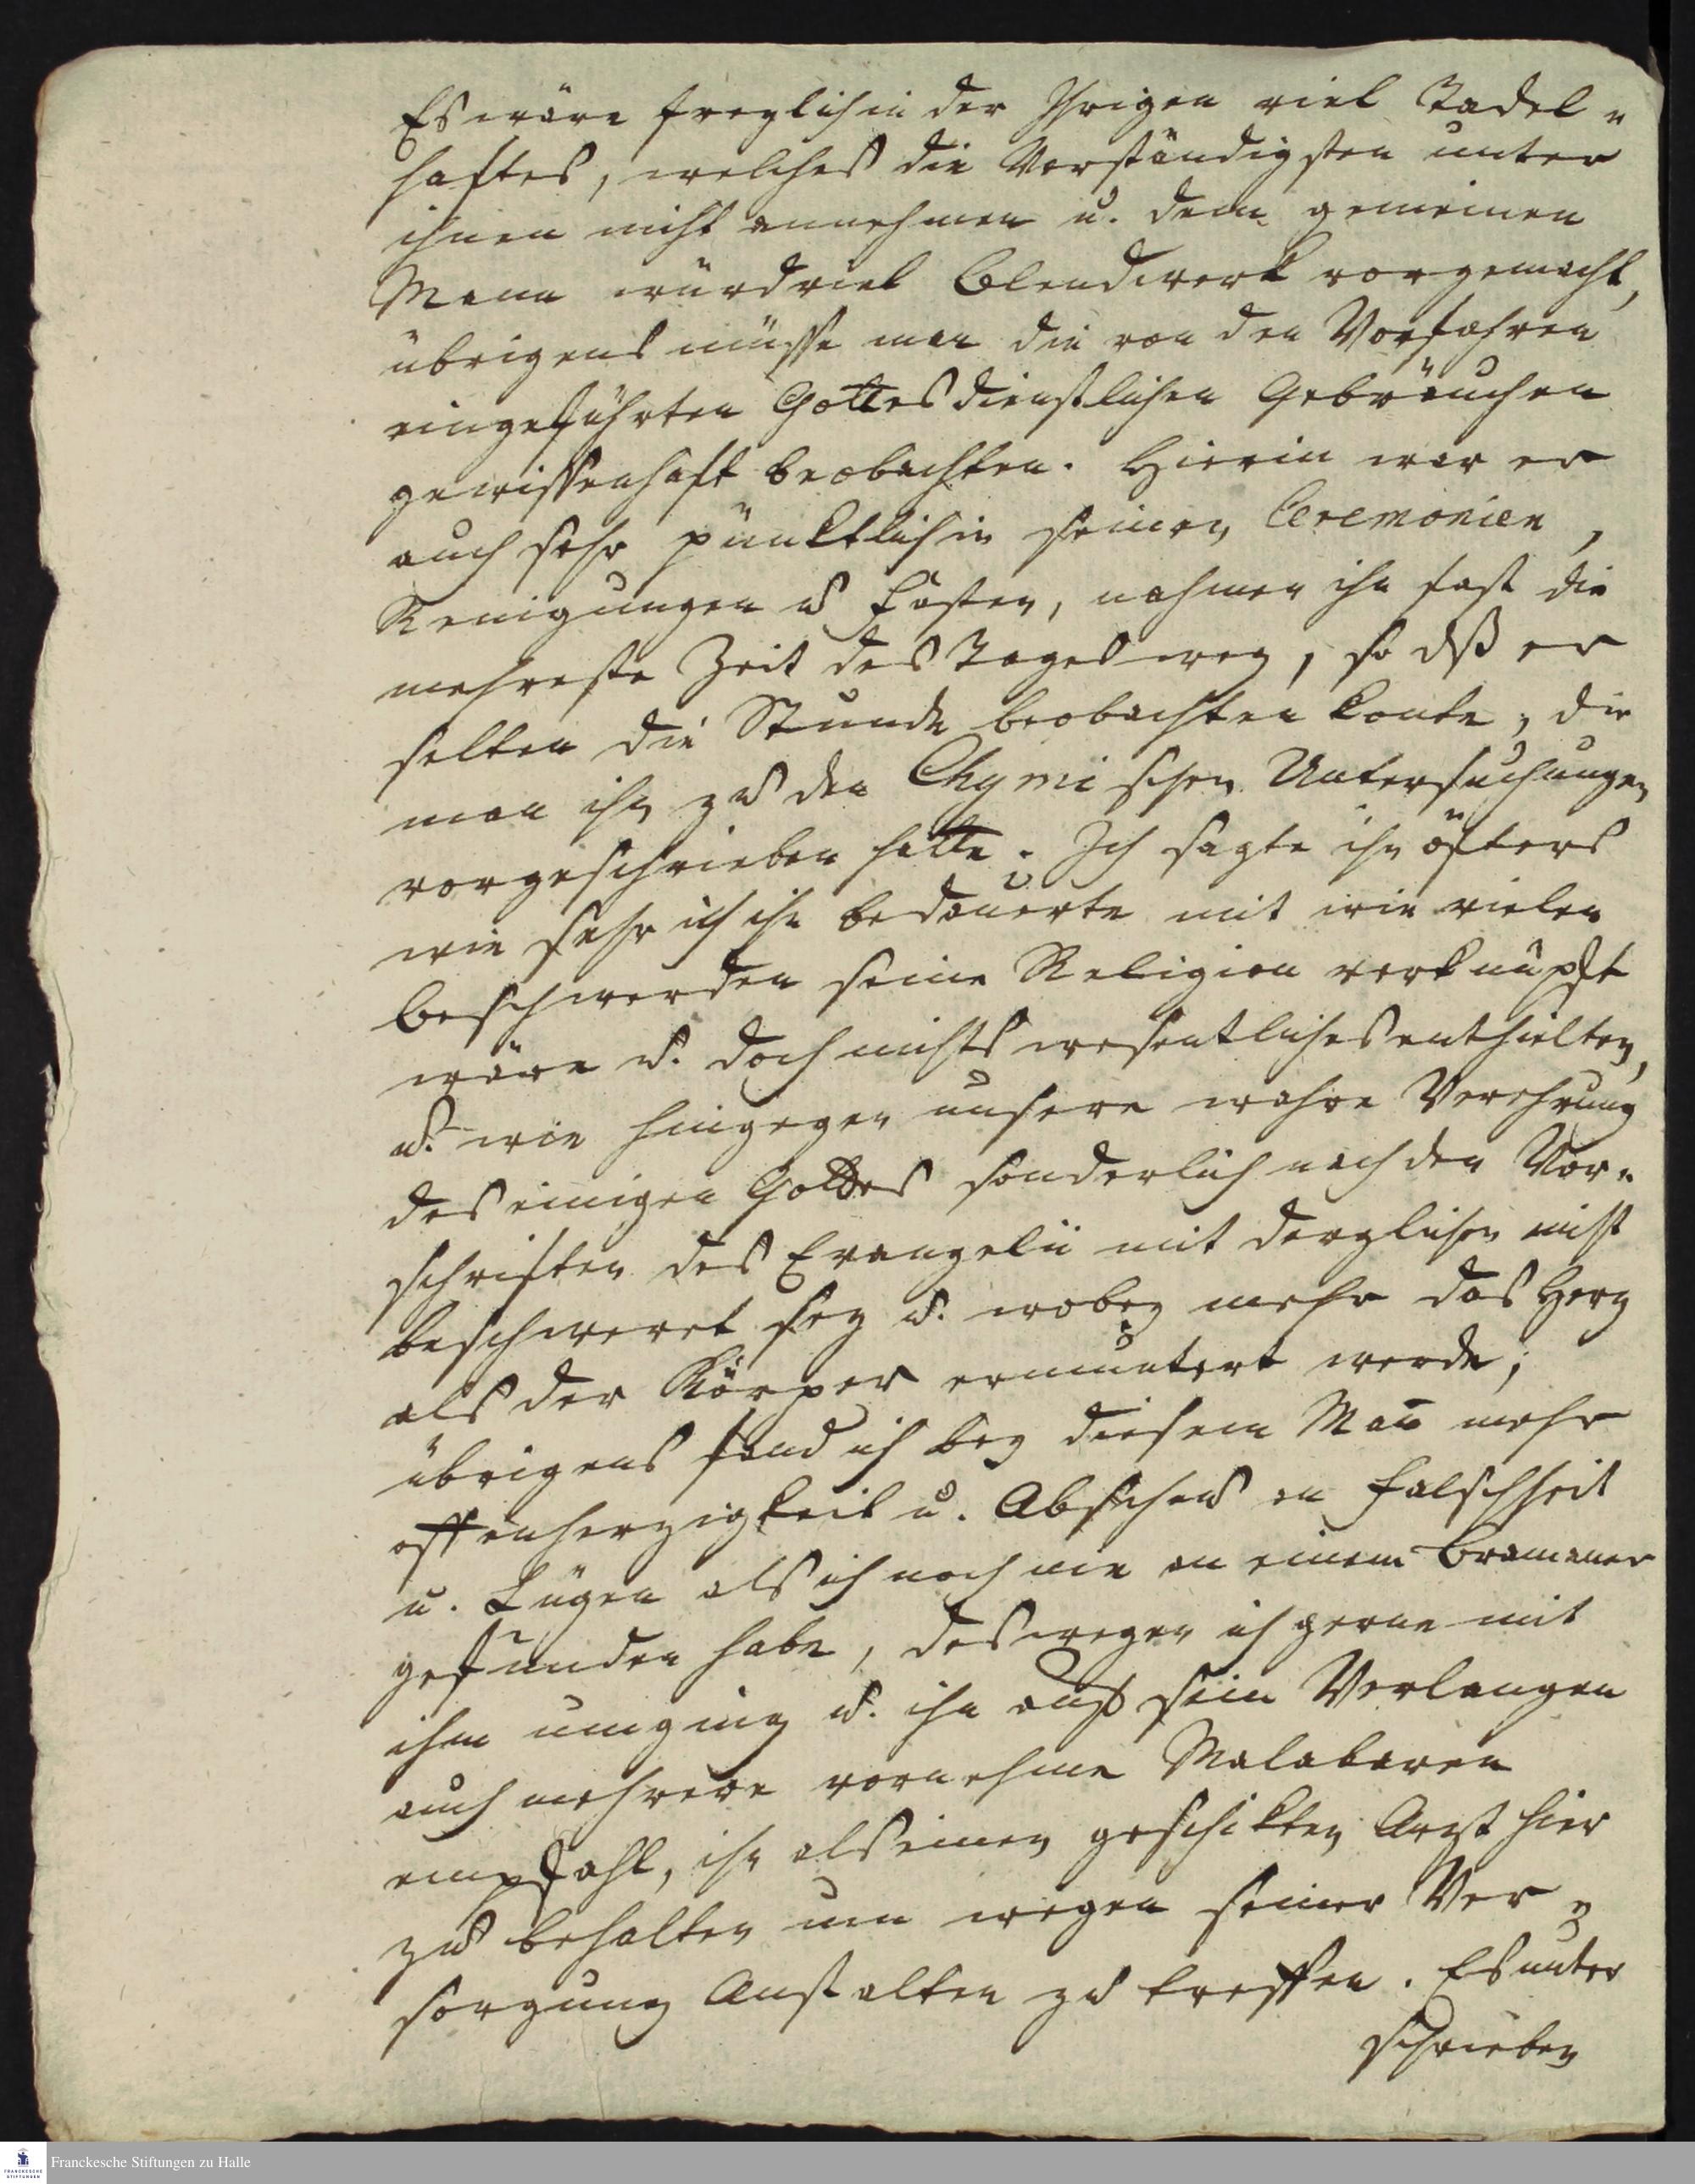 Es wäre freylich in der Ihrigen viel Tadel„
haftes, welches die Verständigsten unter
ihnen nicht annehmen u. dem gemeinen
Mann würd viel Blendwerk vorgemacht,
übrigens müsse man die von den Vorfahren
eingeführten Gottesdienstlichen Gebräuchen
gewissenhaft beobachten. Hierin war er
auch sehr pünktlich in seinen Ceremonien,
Reinigungen u Fasten, nahmen ihn fast die
mehreste Zeit des Tages weg, so dß er
selten die Stunde beobachten konte, die
man ihn zu den Chymischen Untersuchungen
vorgeschrieben hatte. Ich sagte ihn öfters
wie sehr ich ihn bedauerte mit wie vielen
Beschwerden seine Religion verknüpft
wäre u. doch nichts wesentliches enthielten,
u. wie hingegen unsere wahre Verehrung
des einigen Gottes sonderlich nach den Vor„
schriften des Evangelii mit derglichen nicht
beschweret sey u. wobey mehr das Herz
als der Körper ermuntert werde;
übrigens fand ich bey diesem Man̄ mehr
offenherzigkeit u. Abscheu an Falschheit
u. Lügen als ich noch nie an einem Bramaner
gefunden habe, deswegen ich gerne mit
ihm umging u. ihn auf sein Verlangen
auch mehrere vornehme Malabaren
empfahl, ihn als einen geschickten Arzt hier
zu behalten um wegen seiner Ver„
sorgung Anstalten zu treffen. Es unter
schrieben
Franckesche Stiftungen zu Halle